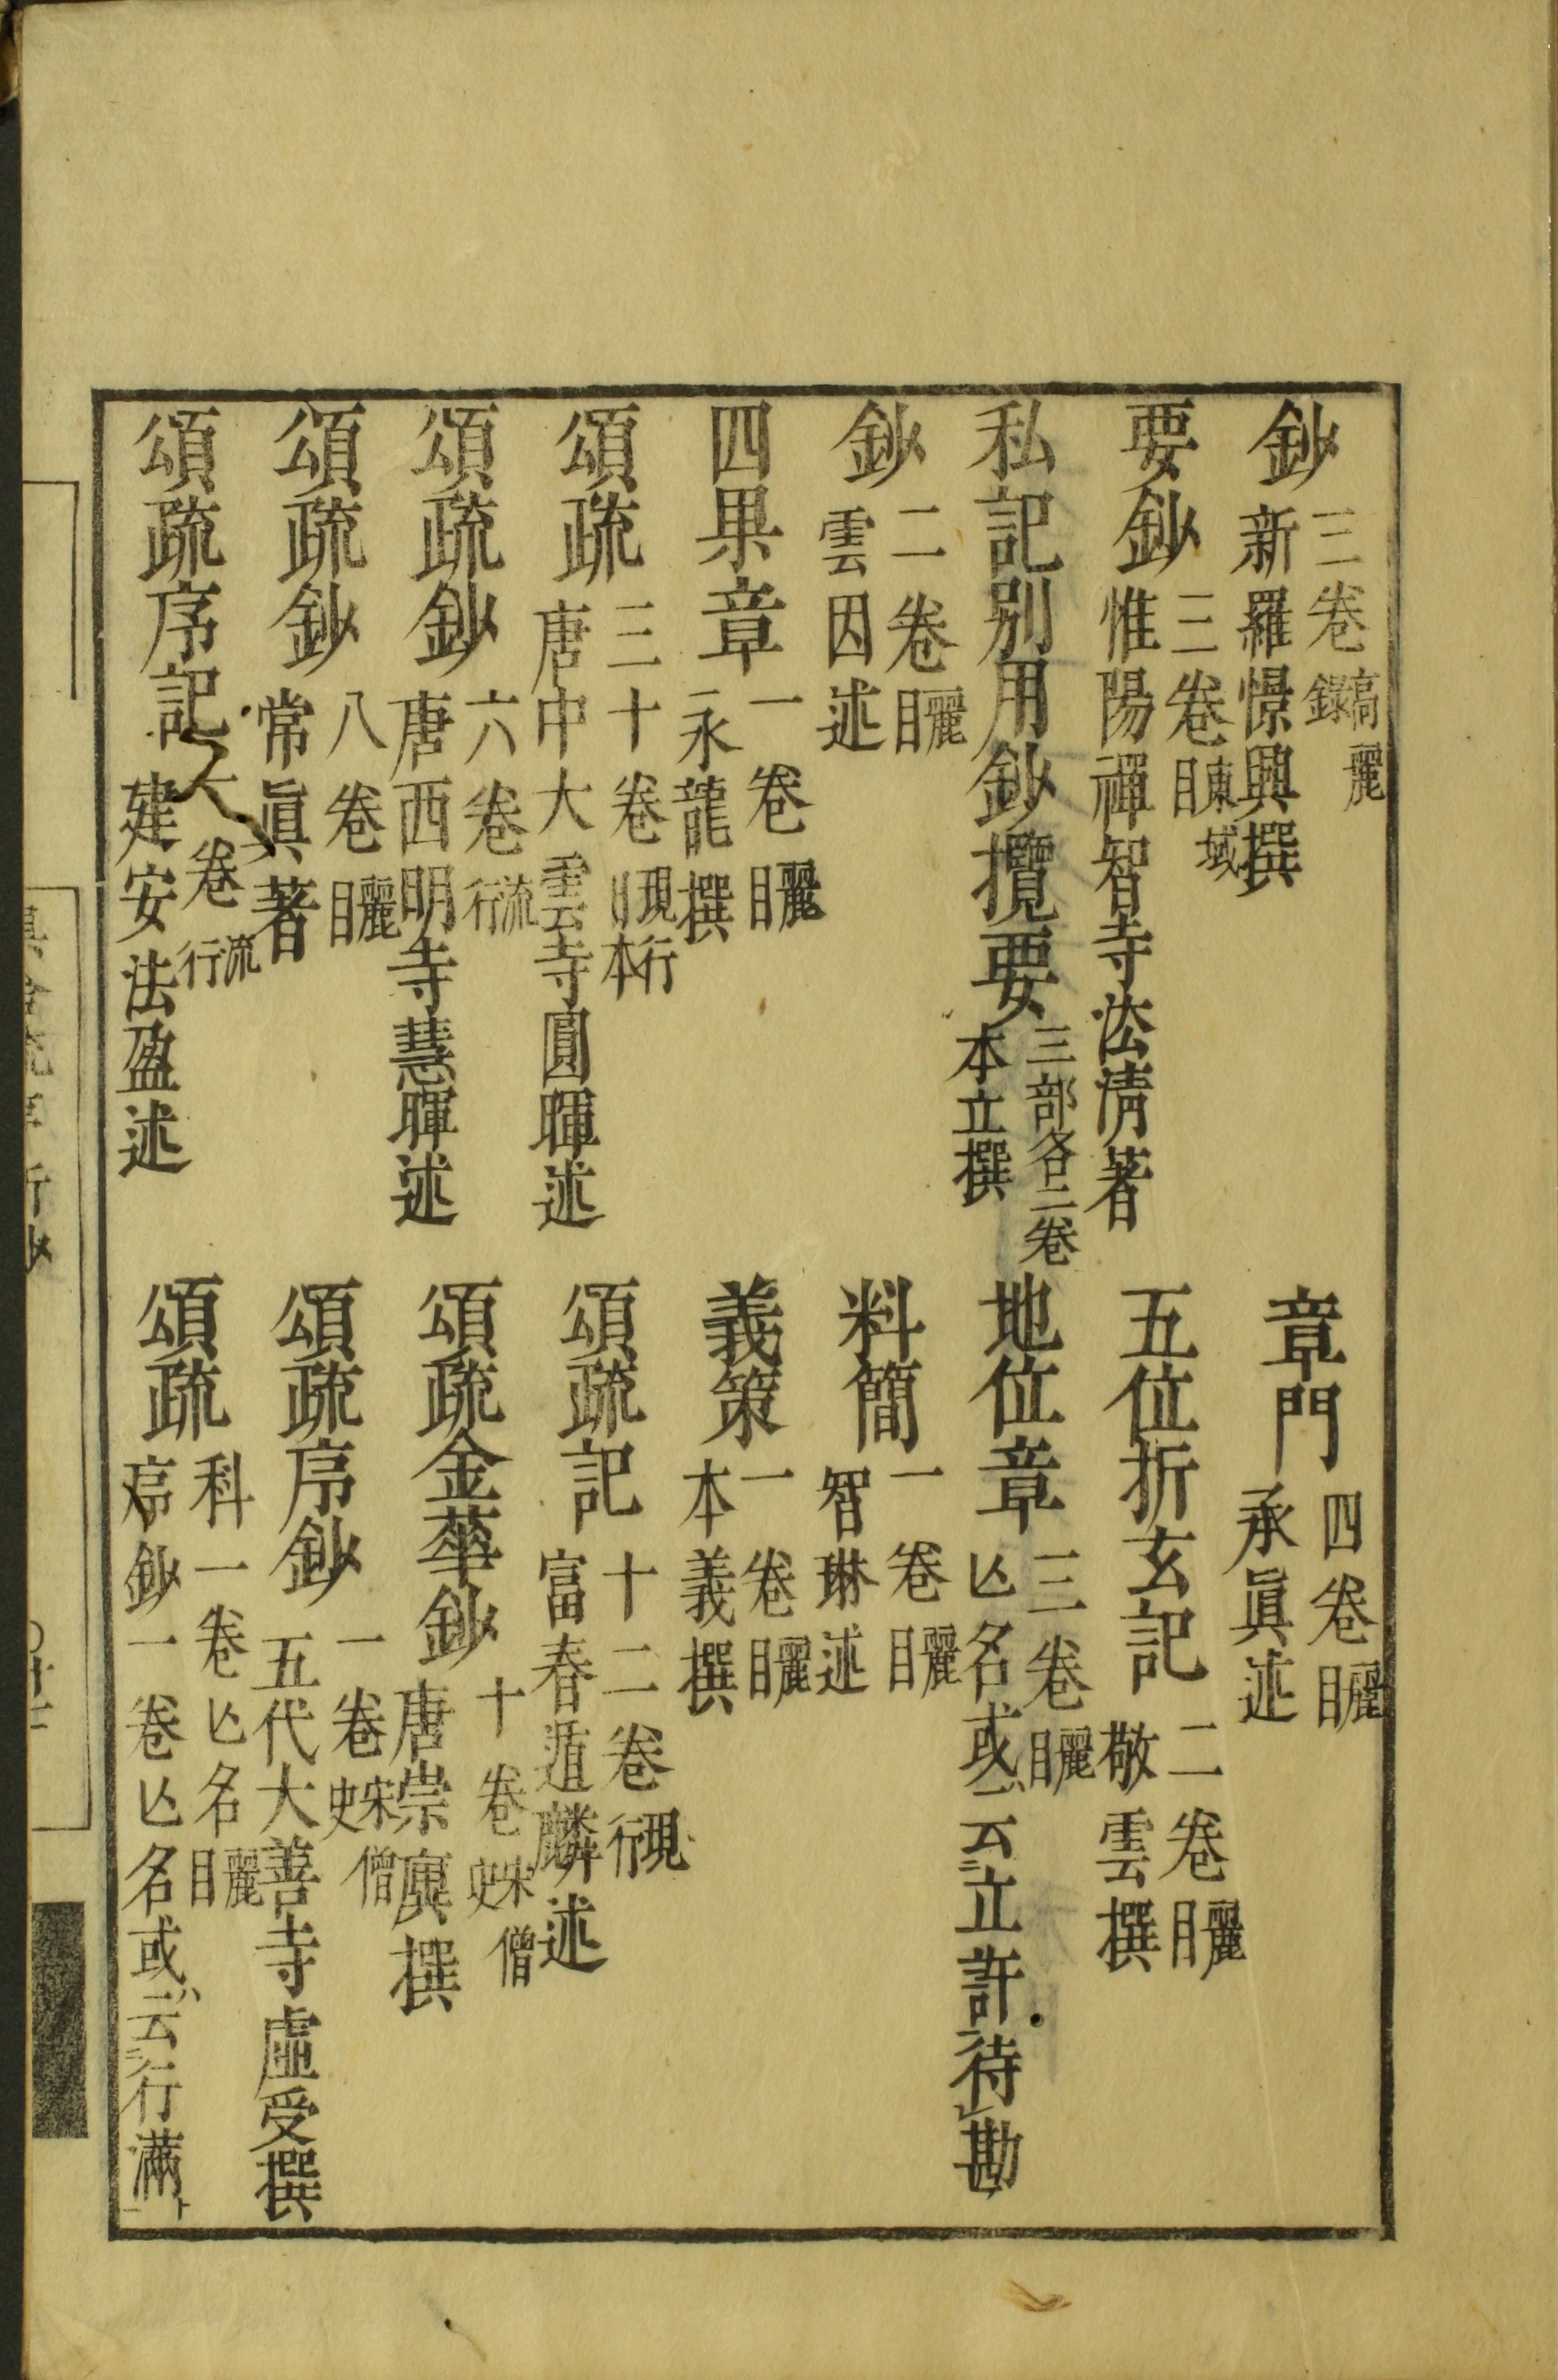 鈔 三卷 高麗錄 新羅憬興撰
章門 四卷 麗目 承眞述
要鈔 三卷 東域目 惟陽禪智寺法淸著
五位折玄記 二卷 麗目 敬雲撰
私記別用鈔攬要 三部各二卷 本立撰
地位章 三卷 麗目 亾名或云立許待勘
鈔 二卷 麗目 雲因述
料簡 一卷 麗目 智琳述
四果章 一卷 麗目 永龍撰
義策 一卷 麗目 本義撰
頌疏 三十卷 現行本 唐中大雲寺圓暉述
頌疏記 十二卷 現行 富春遁麟述
頌疏鈔 六卷 流行 唐西明寺慧暉述
頌疏金華鈔 十卷 宋僧史 唐崇廙撰
頌疏鈔 八卷 麗目 常眞著
頌疏序鈔 一卷 宋僧史 五代大善寺虛受撰
頌疏序記 一卷 流行 建安法盈述
頌疏 科一卷亾名 麗目 序鈔一卷亾名或云行滿